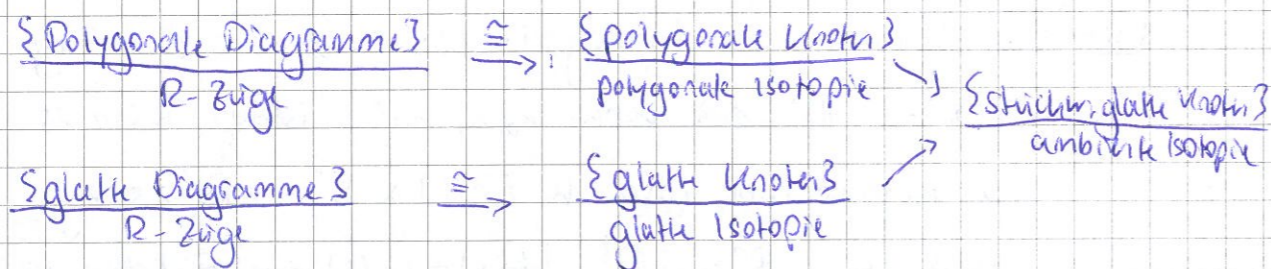 {Polygonale Diagramme} ≅ {polygonale Knoten}
R-Züge → polygonale Isotopie
{stückw. glatte Knoten}
ambiente Isotopie
{glatte Diagramme} ≅ {glatte Knoten}
R-Züge → glatte Isotopie